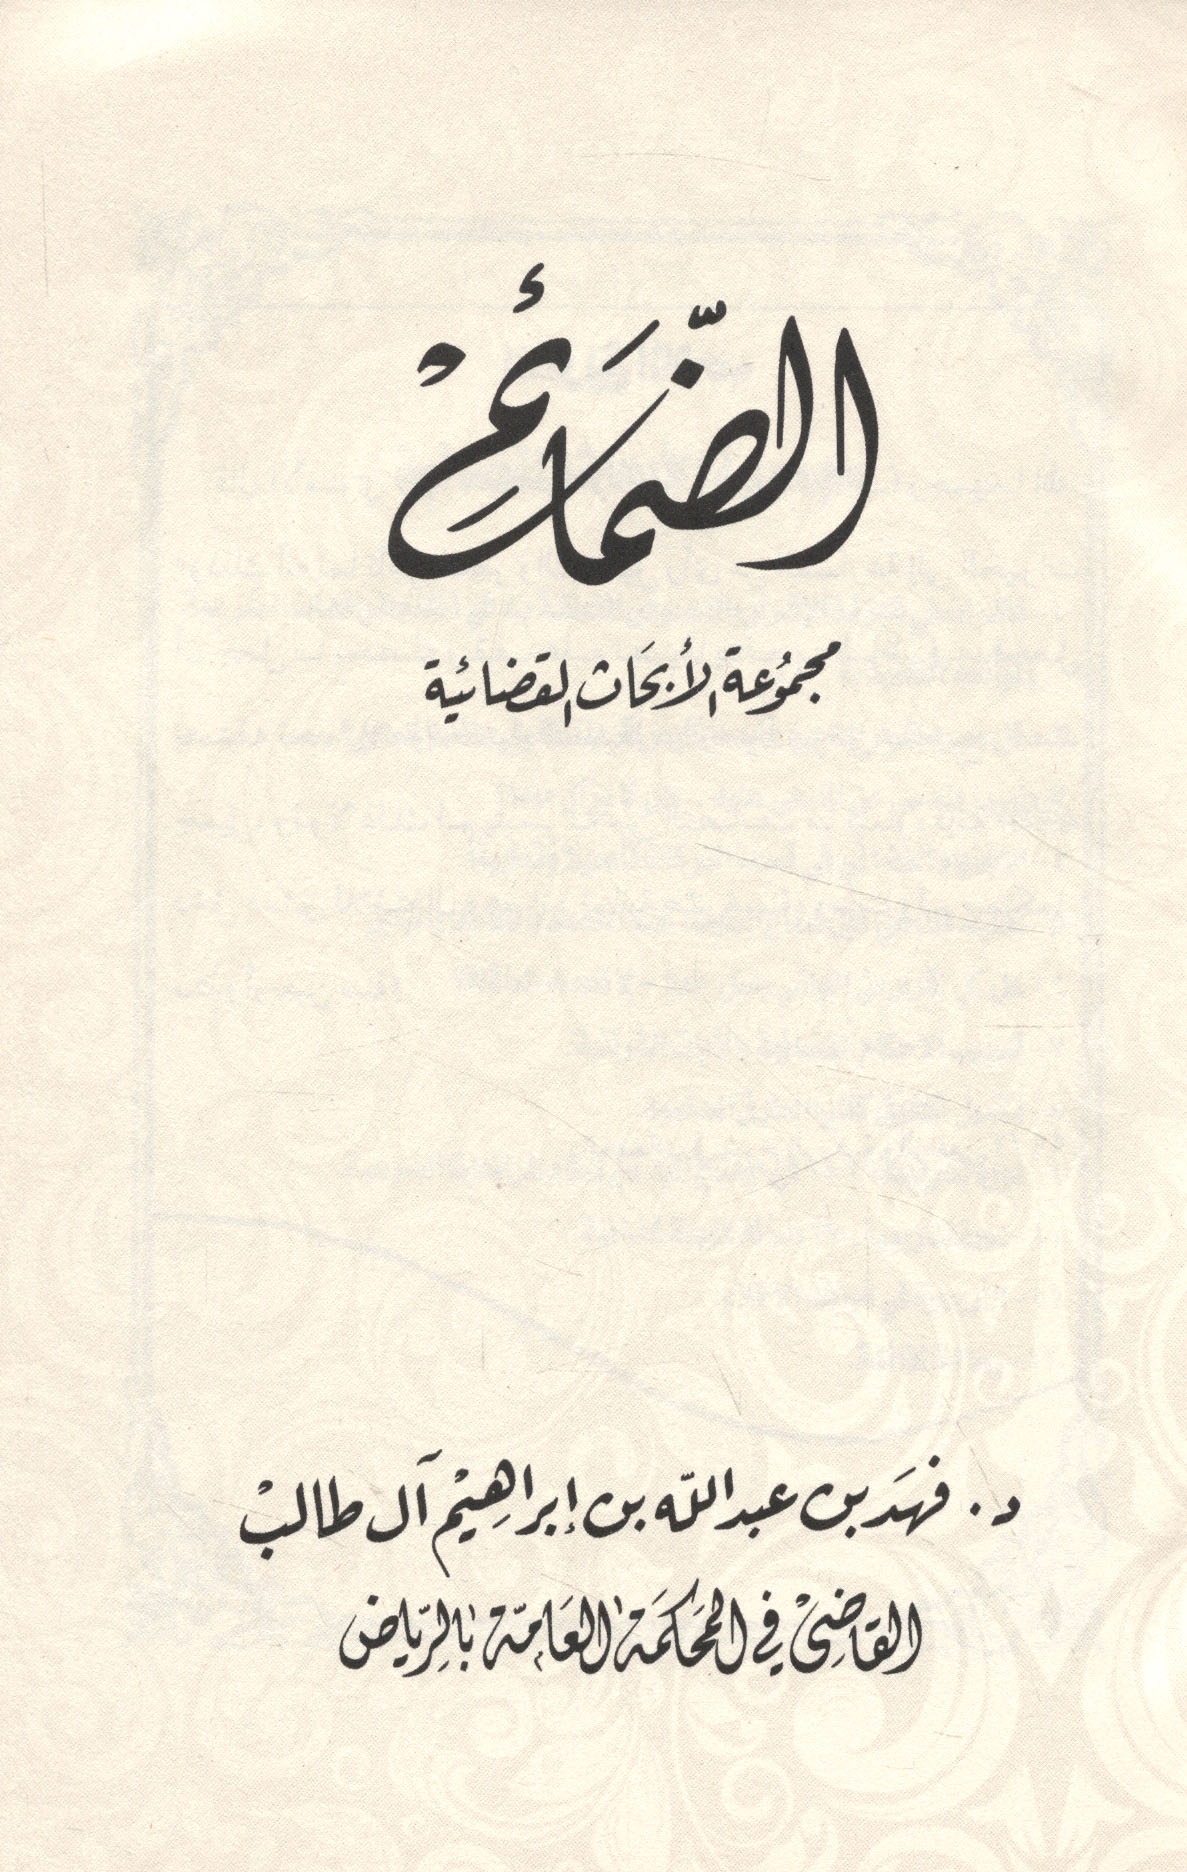 الضَّمَائِمْ
مجمُوعة الأبحَاث القضائية
د. فهَد بن عبدالله بن إبراهِيْم آل طالبْ
القاضِيْ في المحَكمَة العَامّة بالرِّياض